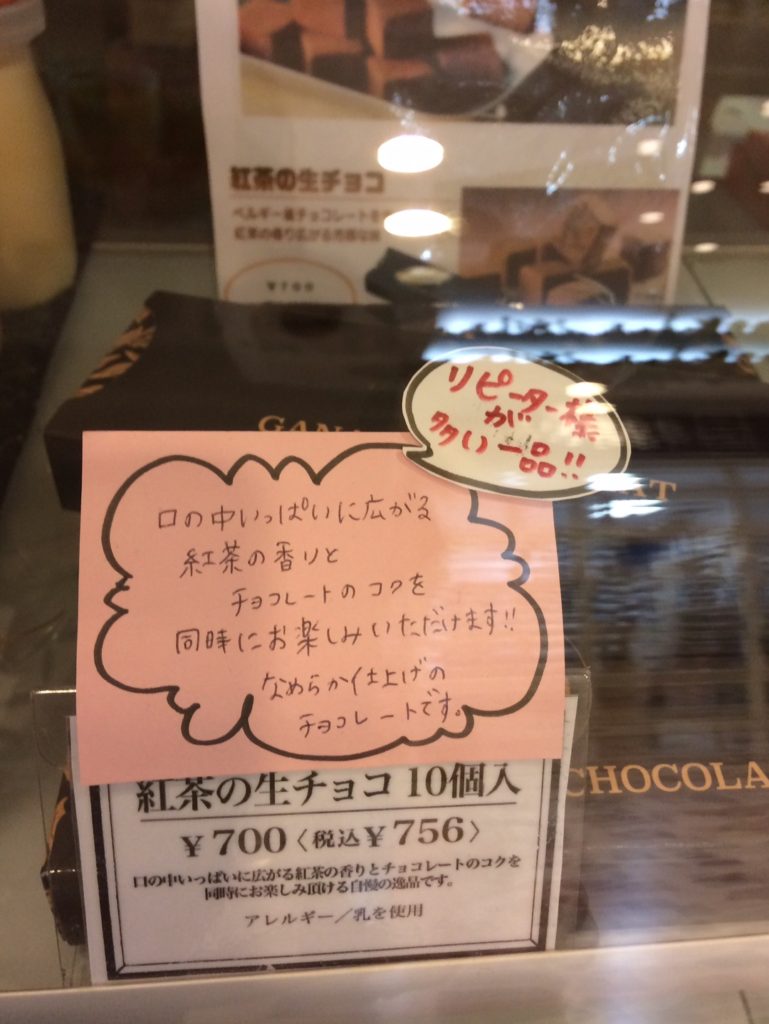 紅茶の生チョコ
ベルギー産チョコレートを
紅茶の香り広がる
￥700
リピーター様
が
多い一品!!
口の中いっぱいに広がる
紅茶の香りと
チョコレートのコクを
同時にお楽しみいただけます!!
なめらか仕上げの
チョコレートです。
CHOCOLA
紅茶の生チョコ 10個入
￥700〈税込￥756〉
口の中いっぱいに広がる紅茶の香りとチョコレートのコクを
同時にお楽しみ頂ける自慢の逸品です。
アレルギー／乳を使用